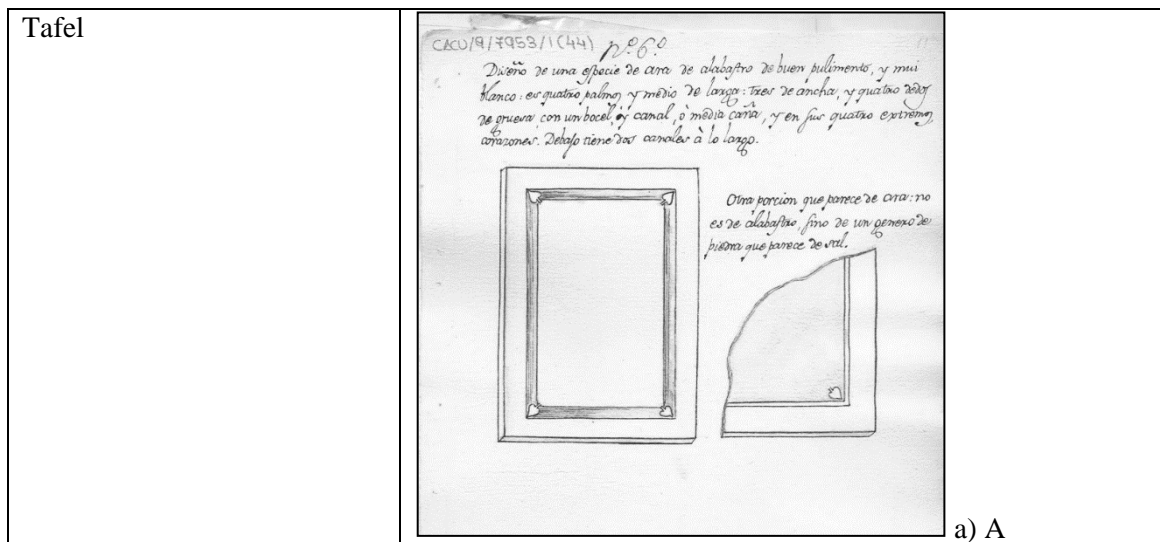 Tafel
CACU/9/7953/1(44)
nº. 6.º
Diseño de una especie de ara de alabastro de buen pulimento, y mui
blanco: es quatro palmos y medio de larga: tres de ancha, y quatro dedos
de gruesa, con un bocel, y canal, ò media caña, y en sus quatro extremos,
corazones. Debajo tiene dos canales à lo largo.
Otra porcion que parece de ara: no
es de alabastro, sino de un genero de
piedra que parece de sal.
a) A